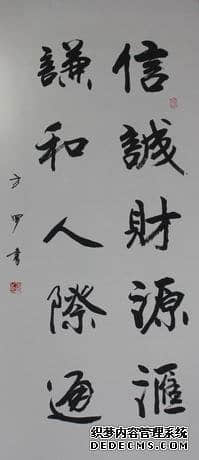 信誠財源滙
謙和人際通
方甲書
织梦内容管理系统
DEDECMS.COM